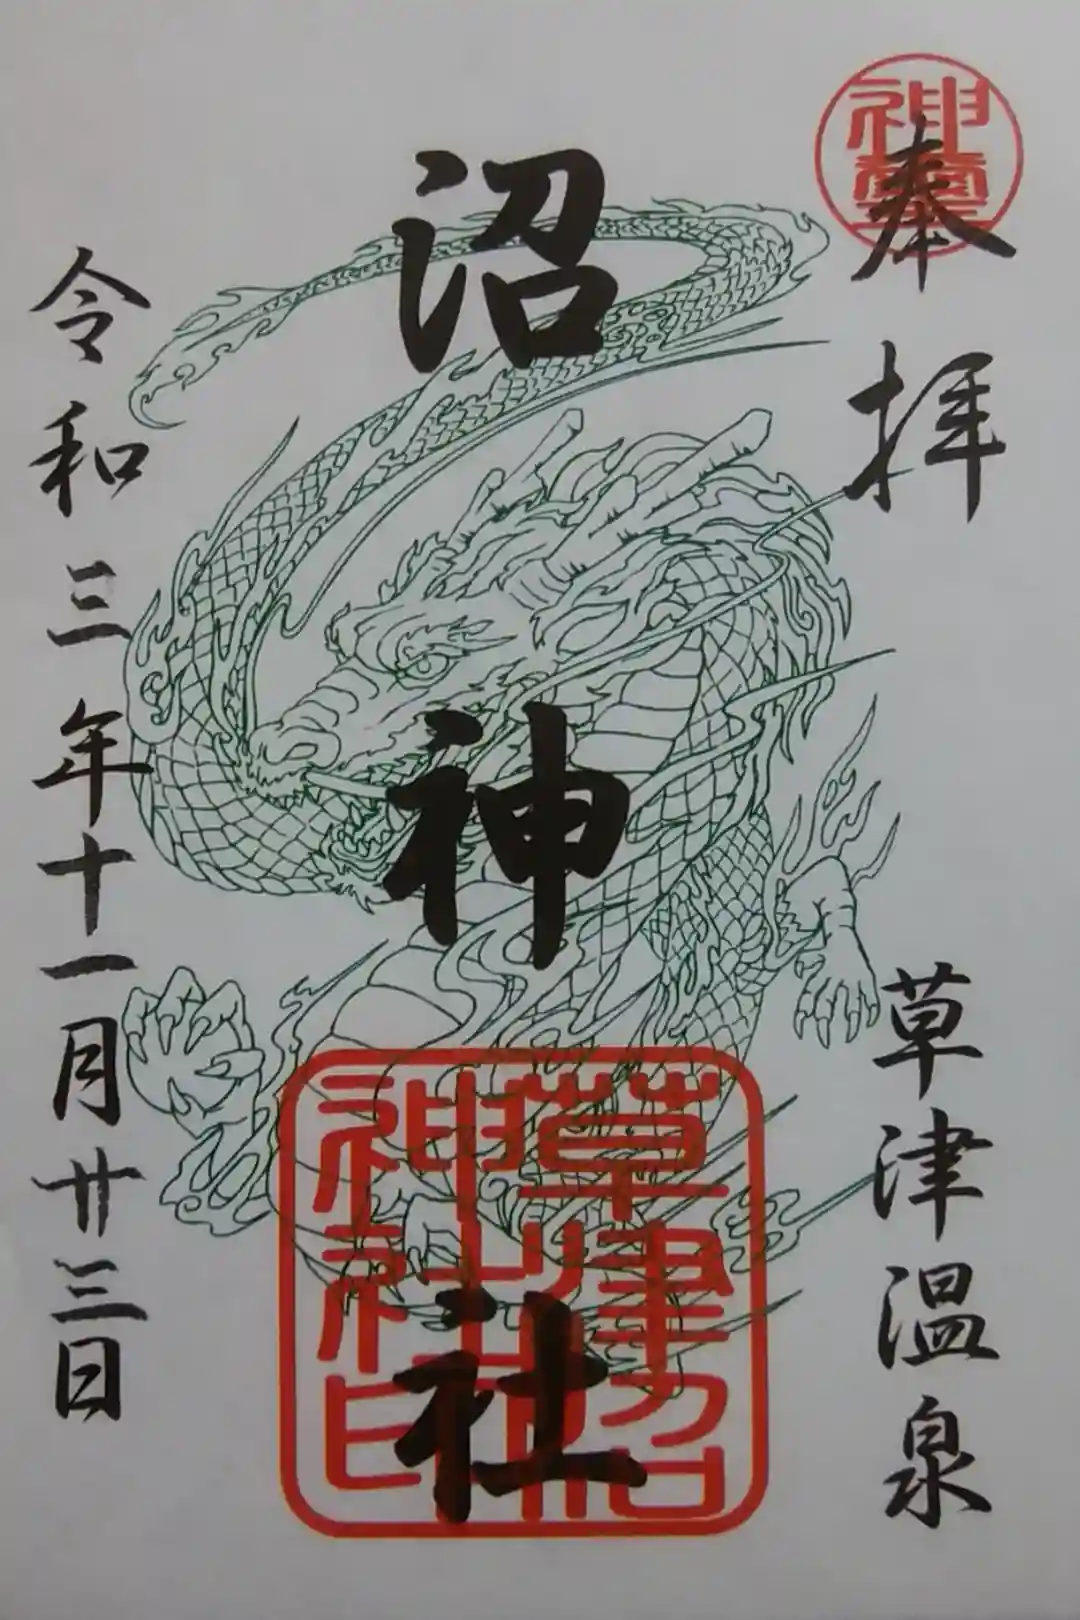 奉拝
草津温泉
沼神社
令和三年十一月廿三日
草津沼
神社